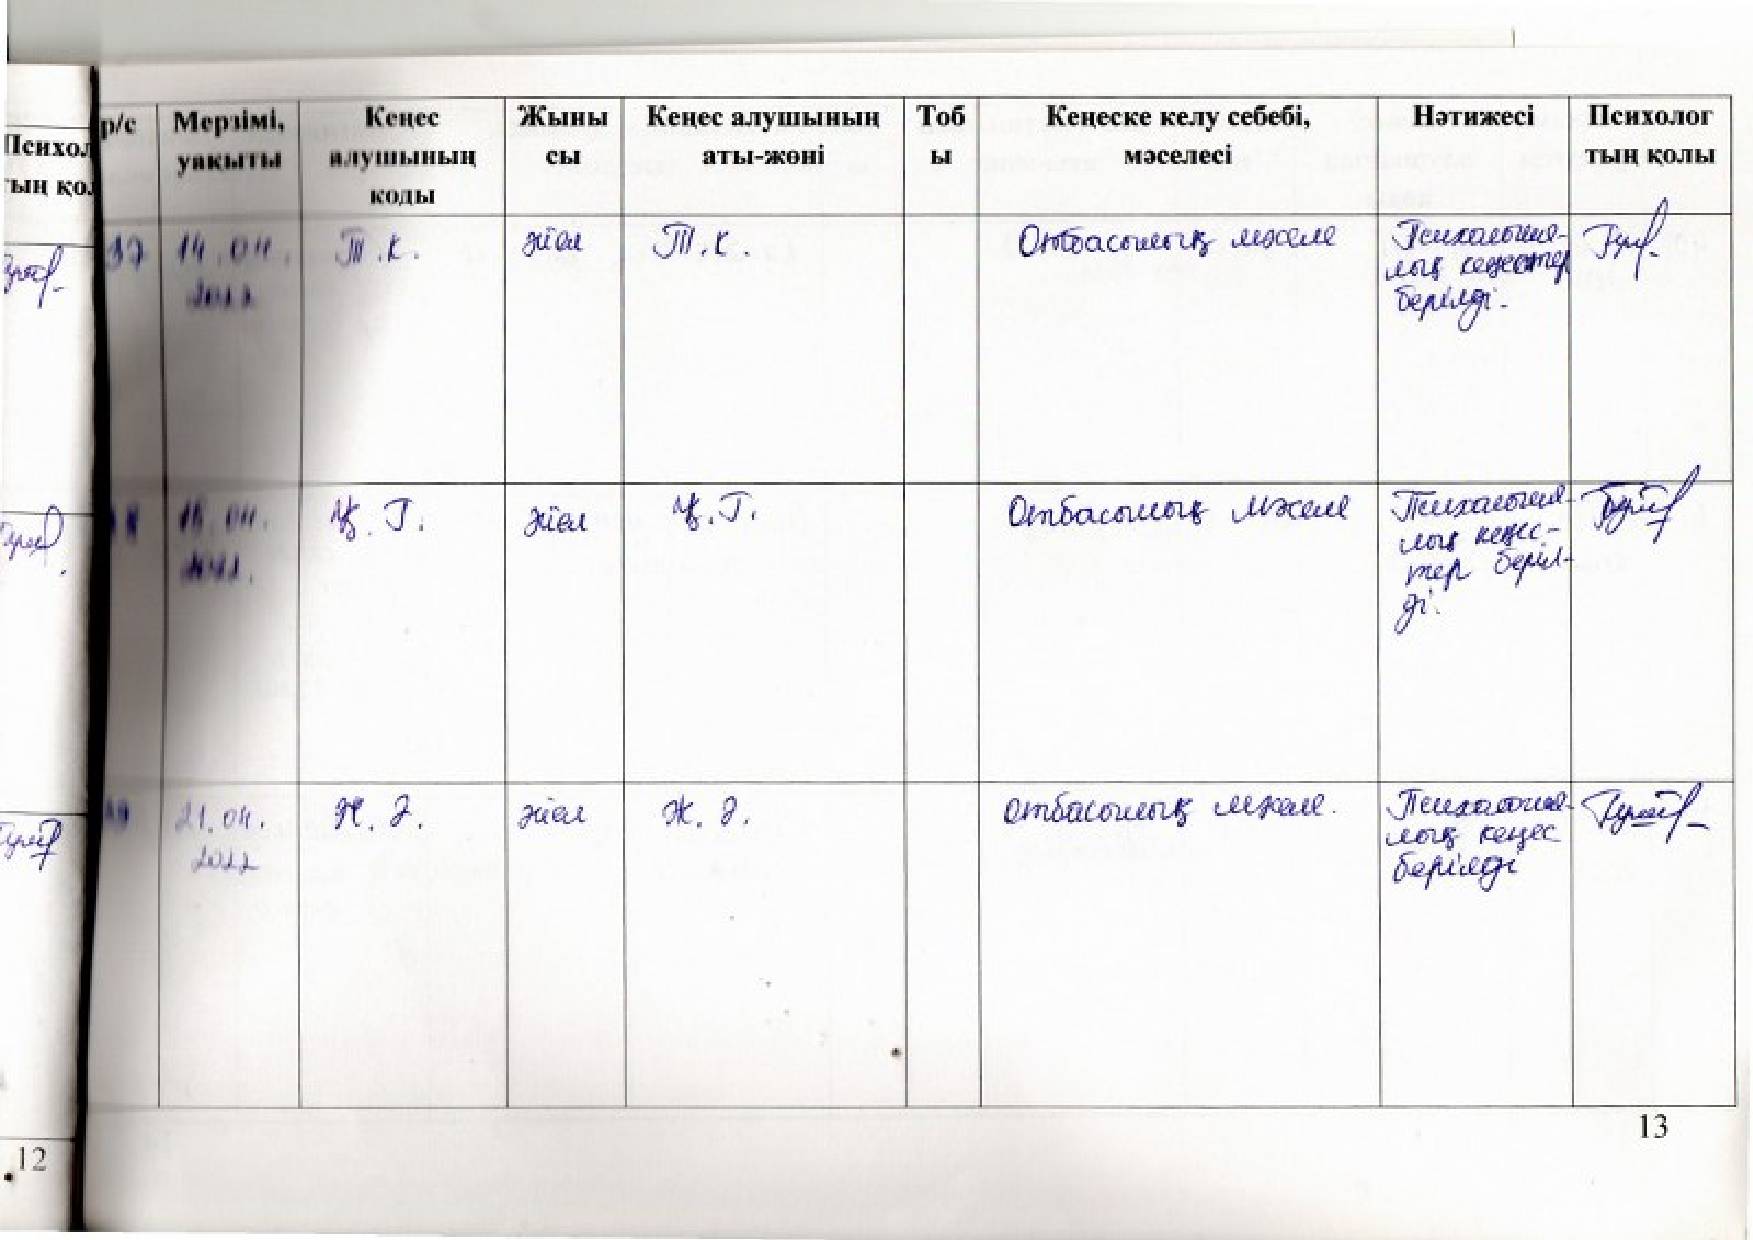 Психол
тың қол
12
р/с
Мерзімі,
уақыты
Кеңес
алушының
коды
Жыны
сы
Кеңес алушының
аты-жөні
Тоб
ы
Кеңеске келу себебі,
мәселесі
Нәтижесі
Психолог
тың қолы
37
14.04.
2022
Т.К.
әйел
Т.К.
Отбасылық мәселе
Психология-
лық кеңестер
берілді.
38
әйел
Отбасылық мәселе
Психология-
лық кеңес-
тер беріл-
ді.
39
21.04.
2022
Ж. Ә.
әйел
Ж. Ә.
отбасылық мәселе.
Психология-
лық кеңес
берілді
13